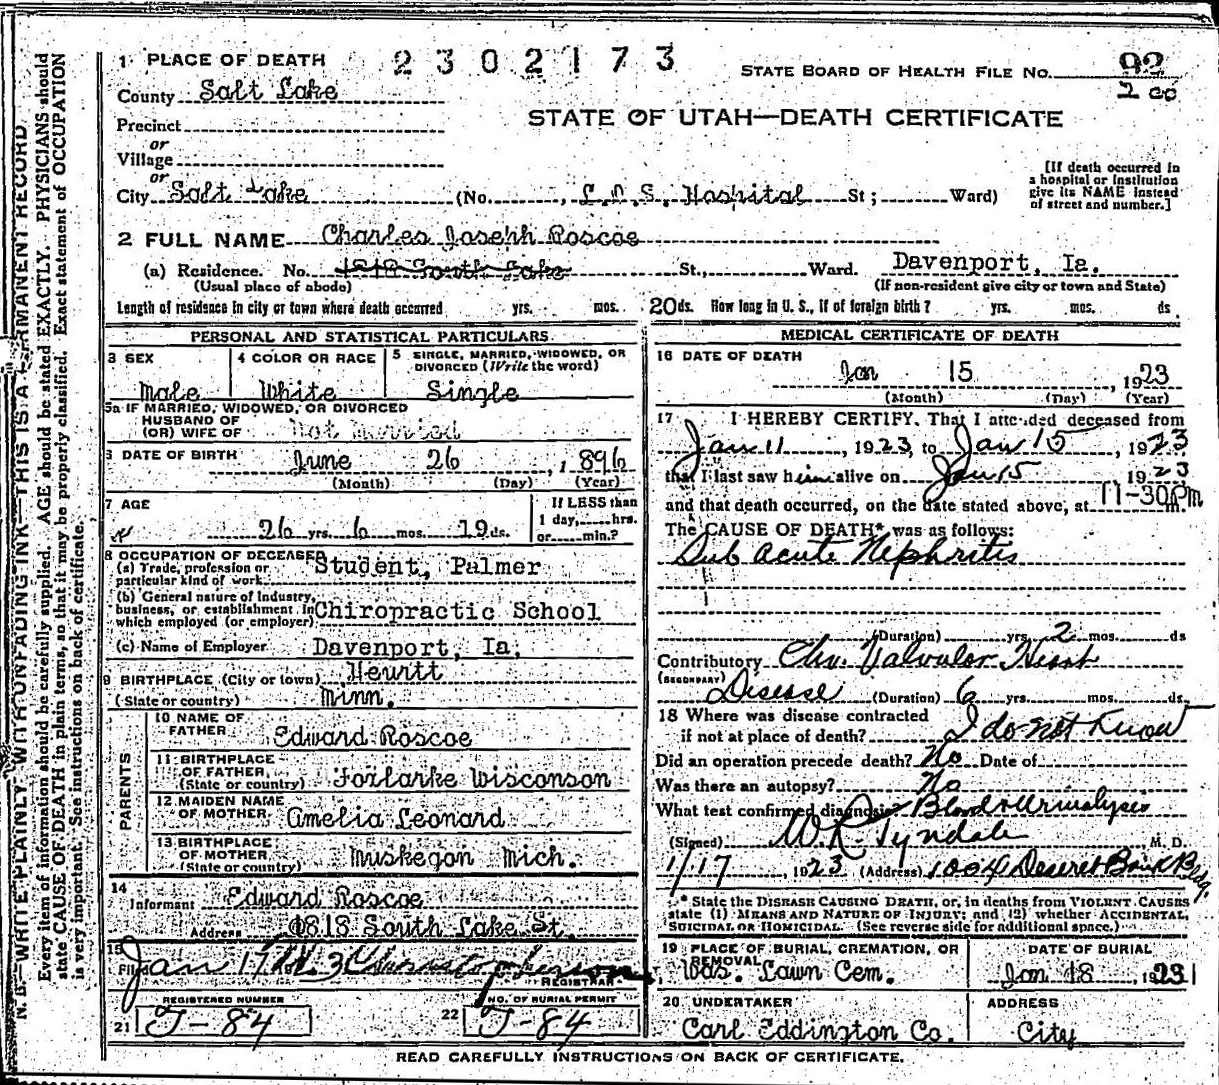 1 PLACE OF DEATH 2302173 STATE BOARD OF HEALTH FILE No. 92
County Salt Lake 2 00
STATE OF UTAH—DEATH CERTIFICATE
Precinct
or
Village
or
City Salt Lake (No. , L.D.S. Hospital St; Ward)
[If death occurred in a hospital or institution give its NAME instead of street and number.]
2 FULL NAME Charles Joseph Roscoe
(a) Residence. No. 1818 South Lake St., Ward. Davenport, Ia.
(Usual place of abode) (If non-resident give city or town and State)
Length of residence in city or town where death occurred yrs. mos. 20 ds. How long in U. S., if of foreign birth? yrs. mos. ds.
PERSONAL AND STATISTICAL PARTICULARS
3 SEX 4 COLOR OR RACE 5 SINGLE, MARRIED, WIDOWED, OR DIVORCED (Write the word)
Male White Single
5a IF MARRIED, WIDOWED, OR DIVORCED
HUSBAND OF
(OR) WIFE OF Not Married
6 DATE OF BIRTH June 26, 1896
(Month) (Day) (Year)
7 AGE If LESS than
26 yrs. 6 mos. 19 ds. 1 day, hrs.
or min.?
8 OCCUPATION OF DECEASED
(a) Trade, profession or particular kind of work Student, Palmer
(b) General nature of Industry, business, or establishment in which employed (or employer) Chiropractic School
(c) Name of Employer Davenport, Ia.
9 BIRTHPLACE (City or town) Hewitt
(State or country) Minn.
PARENTS
10 NAME OF FATHER Edward Roscoe
11 BIRTHPLACE OF FATHER (State or country) Foxlarke Wisconson
12 MAIDEN NAME OF MOTHER Amelia Leonard
13 BIRTHPLACE OF MOTHER (State or country) Muskegon Mich.
14 Informant Edward Roscoe
Address 1818 South Lake St.
15 Filed Jan 17
REGISTRAR
REGISTERED NUMBER NO. OF BURIAL PERMIT
21 J-84 22 J-84
MEDICAL CERTIFICATE OF DEATH
16 DATE OF DEATH
Jan 15, 1923
(Month) (Day) (Year)
17 I HEREBY CERTIFY, That I attended deceased from
Jan 11, 1923, to Jan 15, 1923
that I last saw him alive on Jan 15 1923
and that death occurred, on the date stated above, at 11-30 Pm m.
The CAUSE OF DEATH* was as follows:
Sub Acute Nephritis
(Duration) yrs. 2 mos. ds
Contributory Chr. Valvular Heart
(SECONDARY)
Disease (Duration) 6 yrs. mos. ds.
18 Where was disease contracted
if not at place of death? I do not Know
Did an operation precede death? No Date of
Was there an autopsy? No
What test confirmed diagnosis Blood & Urinalysis
(Signed) W.R. Tyndale M. D.
1/17, 1923 (Address) 1004 Deseret Bank Bldg.
* State the DISEASE CAUSING DEATH, or, in deaths from VIOLENT CAUSES
state (1) MEANS AND NATURE OF INJURY; and (2) whether ACCIDENTAL,
SUICIDAL OR HOMICIDAL. (See reverse side for additional space.)
19 PLACE OF BURIAL, CREMATION, OR REMOVAL DATE OF BURIAL
Was. Lawn Cem. Jan 18, 1923
20 UNDERTAKER ADDRESS
Carl Eddington Co. City
READ CAREFULLY INSTRUCTIONS ON BACK OF CERTIFICATE.
N. B.—WRITE PLAINLY, WITH UNFADING INK—THIS IS A PERMANENT RECORD
Every item of information should be carefully supplied. AGE should be stated EXACTLY. PHYSICIANS should
state CAUSE OF DEATH in plain terms, so that it may be properly classified. Exact statement of OCCUPATION
is very important. See instructions on back of certificate.